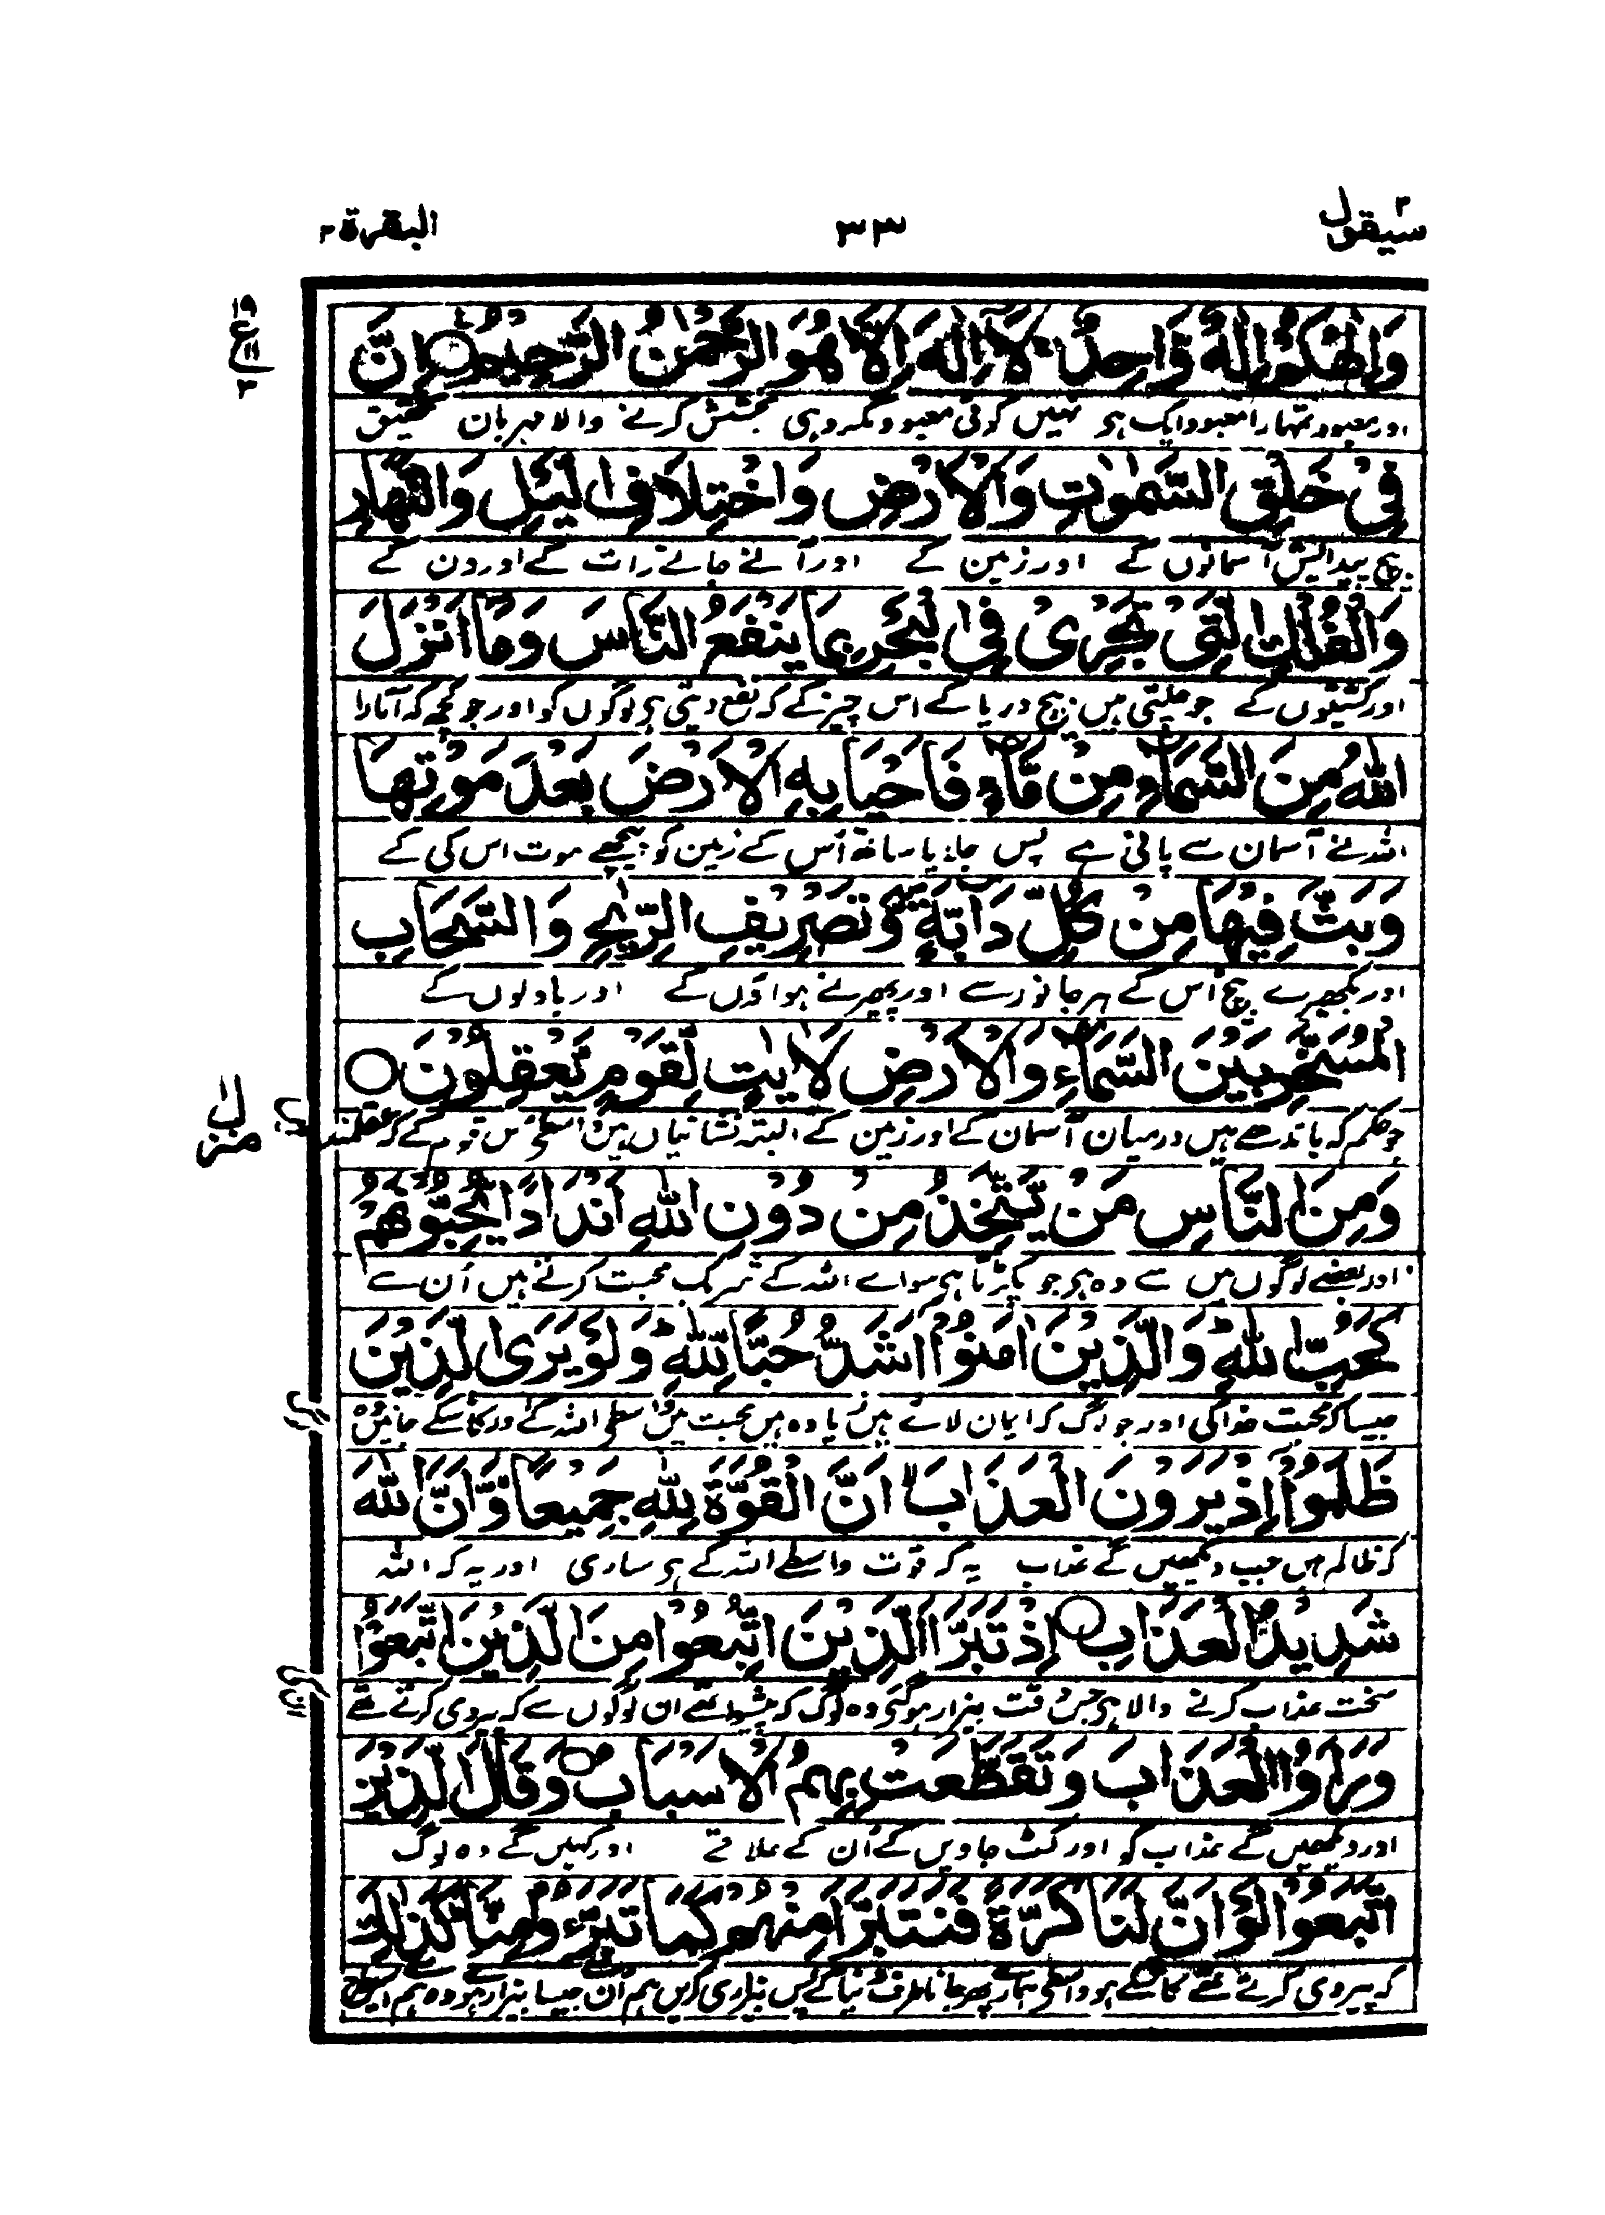 سیقول ۲
۳۳
البقرة ۲
وَاِلٰهُكُمْ اِلٰهٌ وَّاحِدٌ ۚ لَاۤ اِلٰهَ اِلَّا هُوَ الرَّحْمٰنُ الرَّحِیْمُ ۝ اِنَّ
۱۹
ع
۱۱
۳
اور معبود تمہارا معبود ایک ہی نہیں کوئی معبود مگر وہی بخشش کرنے والا مہربان تحقیق
فِیْ خَلْقِ السَّمٰوٰتِ وَالْاَرْضِ وَاخْتِلَافِ الَّیْلِ وَالنَّهَارِ
بیچ پیدایش آسمانوں کے اور زمین کے اور آنے جانے رات کے اور دن کے
وَالْفُلْكِ الَّتِیْ تَجْرِیْ فِی الْبَحْرِ بِمَا یَنْفَعُ النَّاسَ وَمَاۤ اَنْزَلَ
اور کشتیوں کے جو چلتی ہیں بیچ دریا کے اس چیز کے کہ نفع دیتی ہی لوگوں کو اور جو کچھ کہ اتارا
اللّٰهُ مِنَ السَّمَآءِ مِنْ مَّآءٍ فَاَحْیَا بِهِ الْاَرْضَ بَعْدَ مَوْتِهَا
اللہ نے آسمان سے پانی سے پس جلایا ساتھ اُس کے زمین کو پیچھے موت اس کی کے
وَبَثَّ فِیْهَا مِنْ كُلِّ دَآبَّةٍ ۪ وَّتَصْرِیْفِ الرِّیٰحِ وَالسَّحَابِ
اور بکھیرے بیچ اُس کے ہر جانور سے اور پھیرنے ہواؤں کے اور بادلوں کے
الْمُسَخَّرِ بَیْنَ السَّمَآءِ وَالْاَرْضِ لَاٰیٰتٍ لِّقَوْمٍ یَّعْقِلُوْنَ ۝
جو حکم کے باندھے ہیں درمیان آسمان کے اور زمین کے البتہ نشانیاں ہیں واسطے اس قوم کے کہ عقلمند ہیں
منزل
وَمِنَ النَّاسِ مَنْ یَّتَّخِذُ مِنْ دُوْنِ اللّٰهِ اَنْدَادًا یُّحِبُّوْنَهُمْ
اور بعضے لوگوں میں سے وہ ہی جو پکڑتا ہی سوائے اللہ کے شریک محبت کرتے ہیں اُن سے
كَحُبِّ اللّٰهِ ؕ وَالَّذِیْنَ اٰمَنُوْۤا اَشَدُّ حُبًّا لِّلّٰهِ ؕ وَلَوْ یَرَی الَّذِیْنَ
جیسا کہ محبت خدا کی اور جو لوگ کہ ایمان لائے ہیں زیادہ ہیں محبت میں واسطے اللہ کے اور کاشکے جانیں وہ
ظَلَمُوْۤا اِذْ یَرَوْنَ الْعَذَابَ ۙ اَنَّ الْقُوَّةَ لِلّٰهِ جَمِیْعًا ۙ وَّاَنَّ اللّٰهَ
کہ ظالم ہیں جب دیکھیں گے عذاب یہ کہ قوت واسطے اللہ کے ہی ساری اور یہ کہ اللہ
شَدِیْدُ الْعَذَابِ ۝ اِذْ تَبَرَّاَ الَّذِیْنَ اتُّبِعُوْا مِنَ الَّذِیْنَ اتَّبَعُوْا
سخت عذاب کرنے والا ہی جس وقت بیزار ہونگے وہ لوگ کہ پیشوا تھے ان لوگوں سے کہ پیروی کرتے تھے
وَرَاَوُا الْعَذَابَ وَتَقَطَّعَتْ بِهِمُ الْاَسْبَابُ ۝ وَقَالَ الَّذِیْنَ
اور دیکھیں گے عذاب کو اور کٹ جاویں گے اُن کے علاقے اور کہیں گے وہ لوگ
اتَّبَعُوْا لَوْ اَنَّ لَنَا كَرَّةً فَنَتَبَرَّاَ مِنْهُمْ كَمَا تَبَرَّءُوْا مِنَّا ؕ كَذٰلِكَ
کہ پیروی کرتے تھے کاشکے ہو واسطے ہمارے پھر جانا طرف دنیا کے پس بیزاری کریں ہم اُن سے جیسا بیزار ہوئے وہ ہم سے اسی طرح